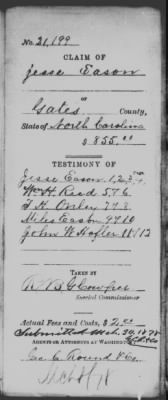 No. 21,199
CLAIM OF
Jesse Eason
of
Gates County,
State of North Carolina
$855.00
TESTIMONY OF
Jesse Eason 1, 2, 3, 4
Wm H. Reed 5, 7, 6
Miles Eason 9 & 10
John W Hofler 11/12
TAKEN BY
Special Commissioner
Actual Fees and Costs, $
Submitted
AGENTS OR ATTORNEYS AT WASHINGTON
Geo. E. Round & Co.